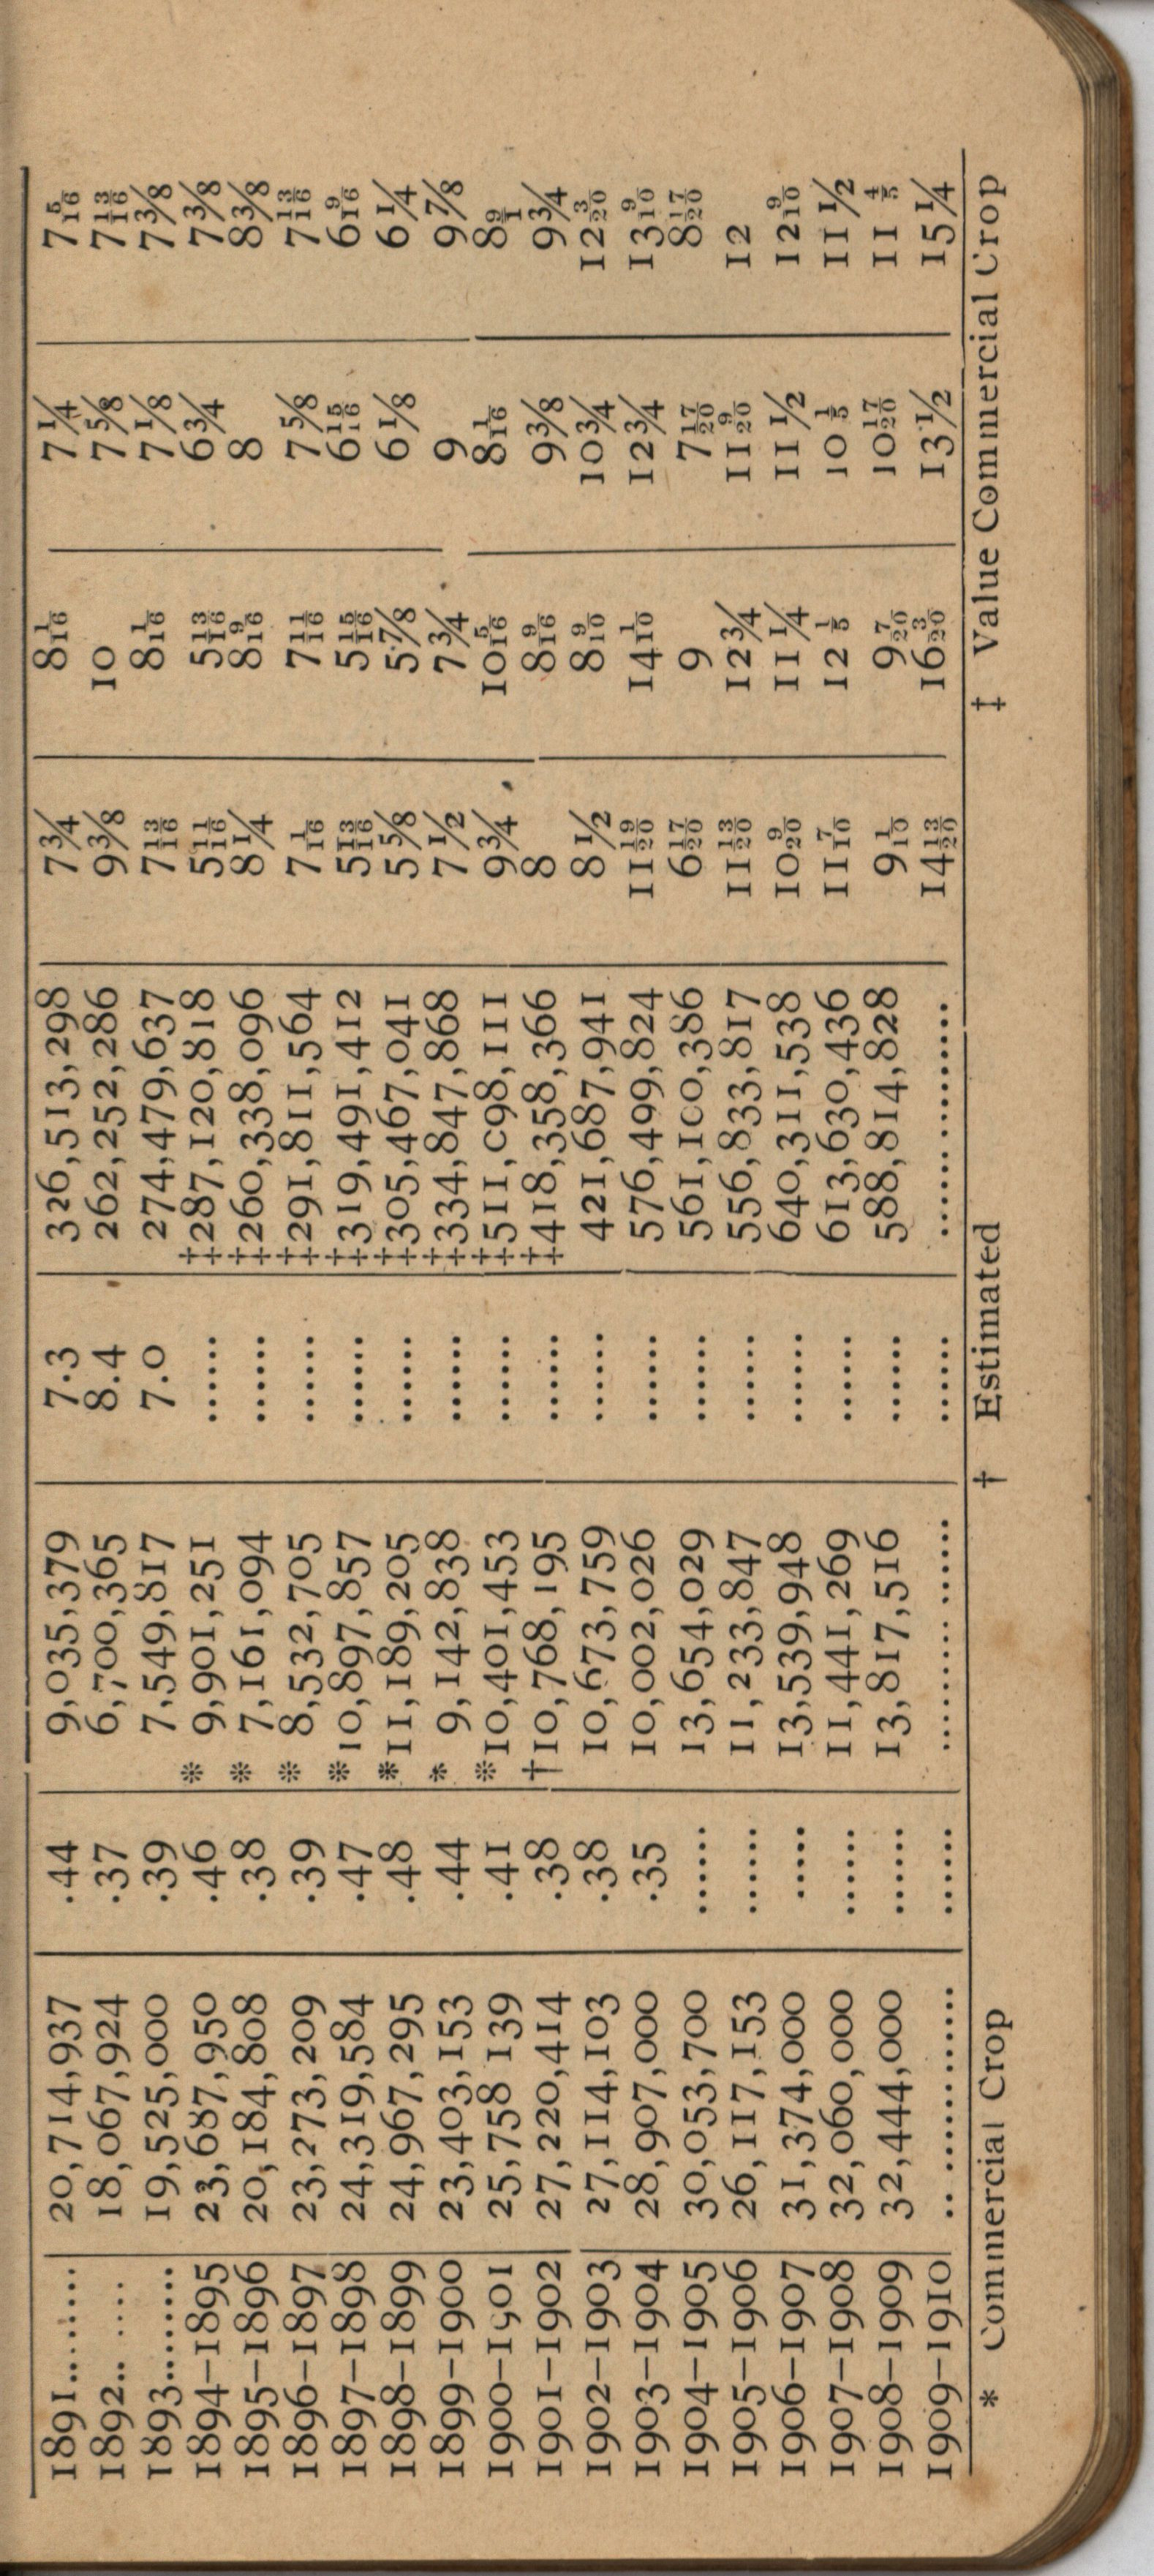 1891........ 20,714,937 .44 9,035,379 7.3 326,513,298 7 3/4 8 1/16 7 1/4 7 5/16
1892.. .... 18,067,924 .37 6,700,365 8.4 262,252,286 9 3/8 10 7 5/8 7 13/16
1893........ 19,525,000 .39 7,549,817 7.0 274,479,637 7 13/16 8 1/16 7 1/8 7 3/8
1894–1895 23,687,950 .46 * 9,901,251 ...... ‡287,120,818 5 11/16 5 13/16 6 3/4 7 3/8
1895–1896 20,184,808 .38 * 7,161,094 ...... ‡260,338,096 8 1/4 8 9/16 8 8 3/8
1896–1897 23,273,209 .39 * 8,532,705 ...... ‡291,811,564 7 1/16 7 11/16 7 5/8 7 13/16
1897–1898 24,319,584 .47 * 10,897,857 ...... ‡319,491,412 5 13/16 5 15/16 6 15/16 6 9/16
1898–1899 24,967,295 .48 * 11,189,205 ...... ‡305,467,041 5 5/8 5 7/8 6 1/8 6 1/4
1899–1900 23,403,153 .44 * 9,142,838 ...... ‡334,847,868 7 1/2 7 3/4 9 9 7/8
1900–1901 25,758 139 .41 * 10,401,453 ...... ‡511,c98,111 9 3/4 10 5/16 8 1/16 8 9/1
1901–1902 27,220,414 .38 †10,768,195 ...... ‡418,358,366 8 8 9/16 9 3/8 9 3/4
1902–1903 27,114,103 .38 10,673,759 ...... 421,687,941 8 1/2 8 9/10 10 3/4 12 3/20
1903–1904 28,907,000 .35 10,002,026 ...... 576,499,824 11 19/20 14 1/10 12 3/4 13 9/10
1904–1905 30,053,700 ...... 13,654,029 ...... 561,1c0,386 6 17/20 9 7 17/20 8 17/20
1905–1906 26,117,153 ...... 11,233,847 ...... 556,833,817 11 13/20 12 3/4 11 9/20 12
1906–1907 31,374,000 .... 13,539,948 ...... 640,311,538 10 9/20 11 1/4 11 1/2 12 9/10
1907–1908 32,060,000 ...... 11,441,269 ...... 613,630,436 11 7/10 12 1/5 10 1/5 11 1/2
1908–1909 32,444,000 ...... 13,817,516 ...... 588,814,828 9 1/10 9 7/20 10 17/20 11 4/5
1909–1910 .. ............... ...... ................ ...... ................ 14 13/20 16 3/20 13 1/2 15 1/4
* Commercial Crop † Estimated ‡ Value Commercial Crop